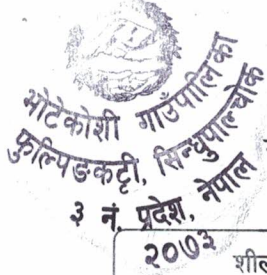 भोटेकोशी गाउँपालिका
फुल्पिङकट्टी, सिन्धुपाल्चोक
३ नं. प्रदेश, नेपाल
२०७३
शील